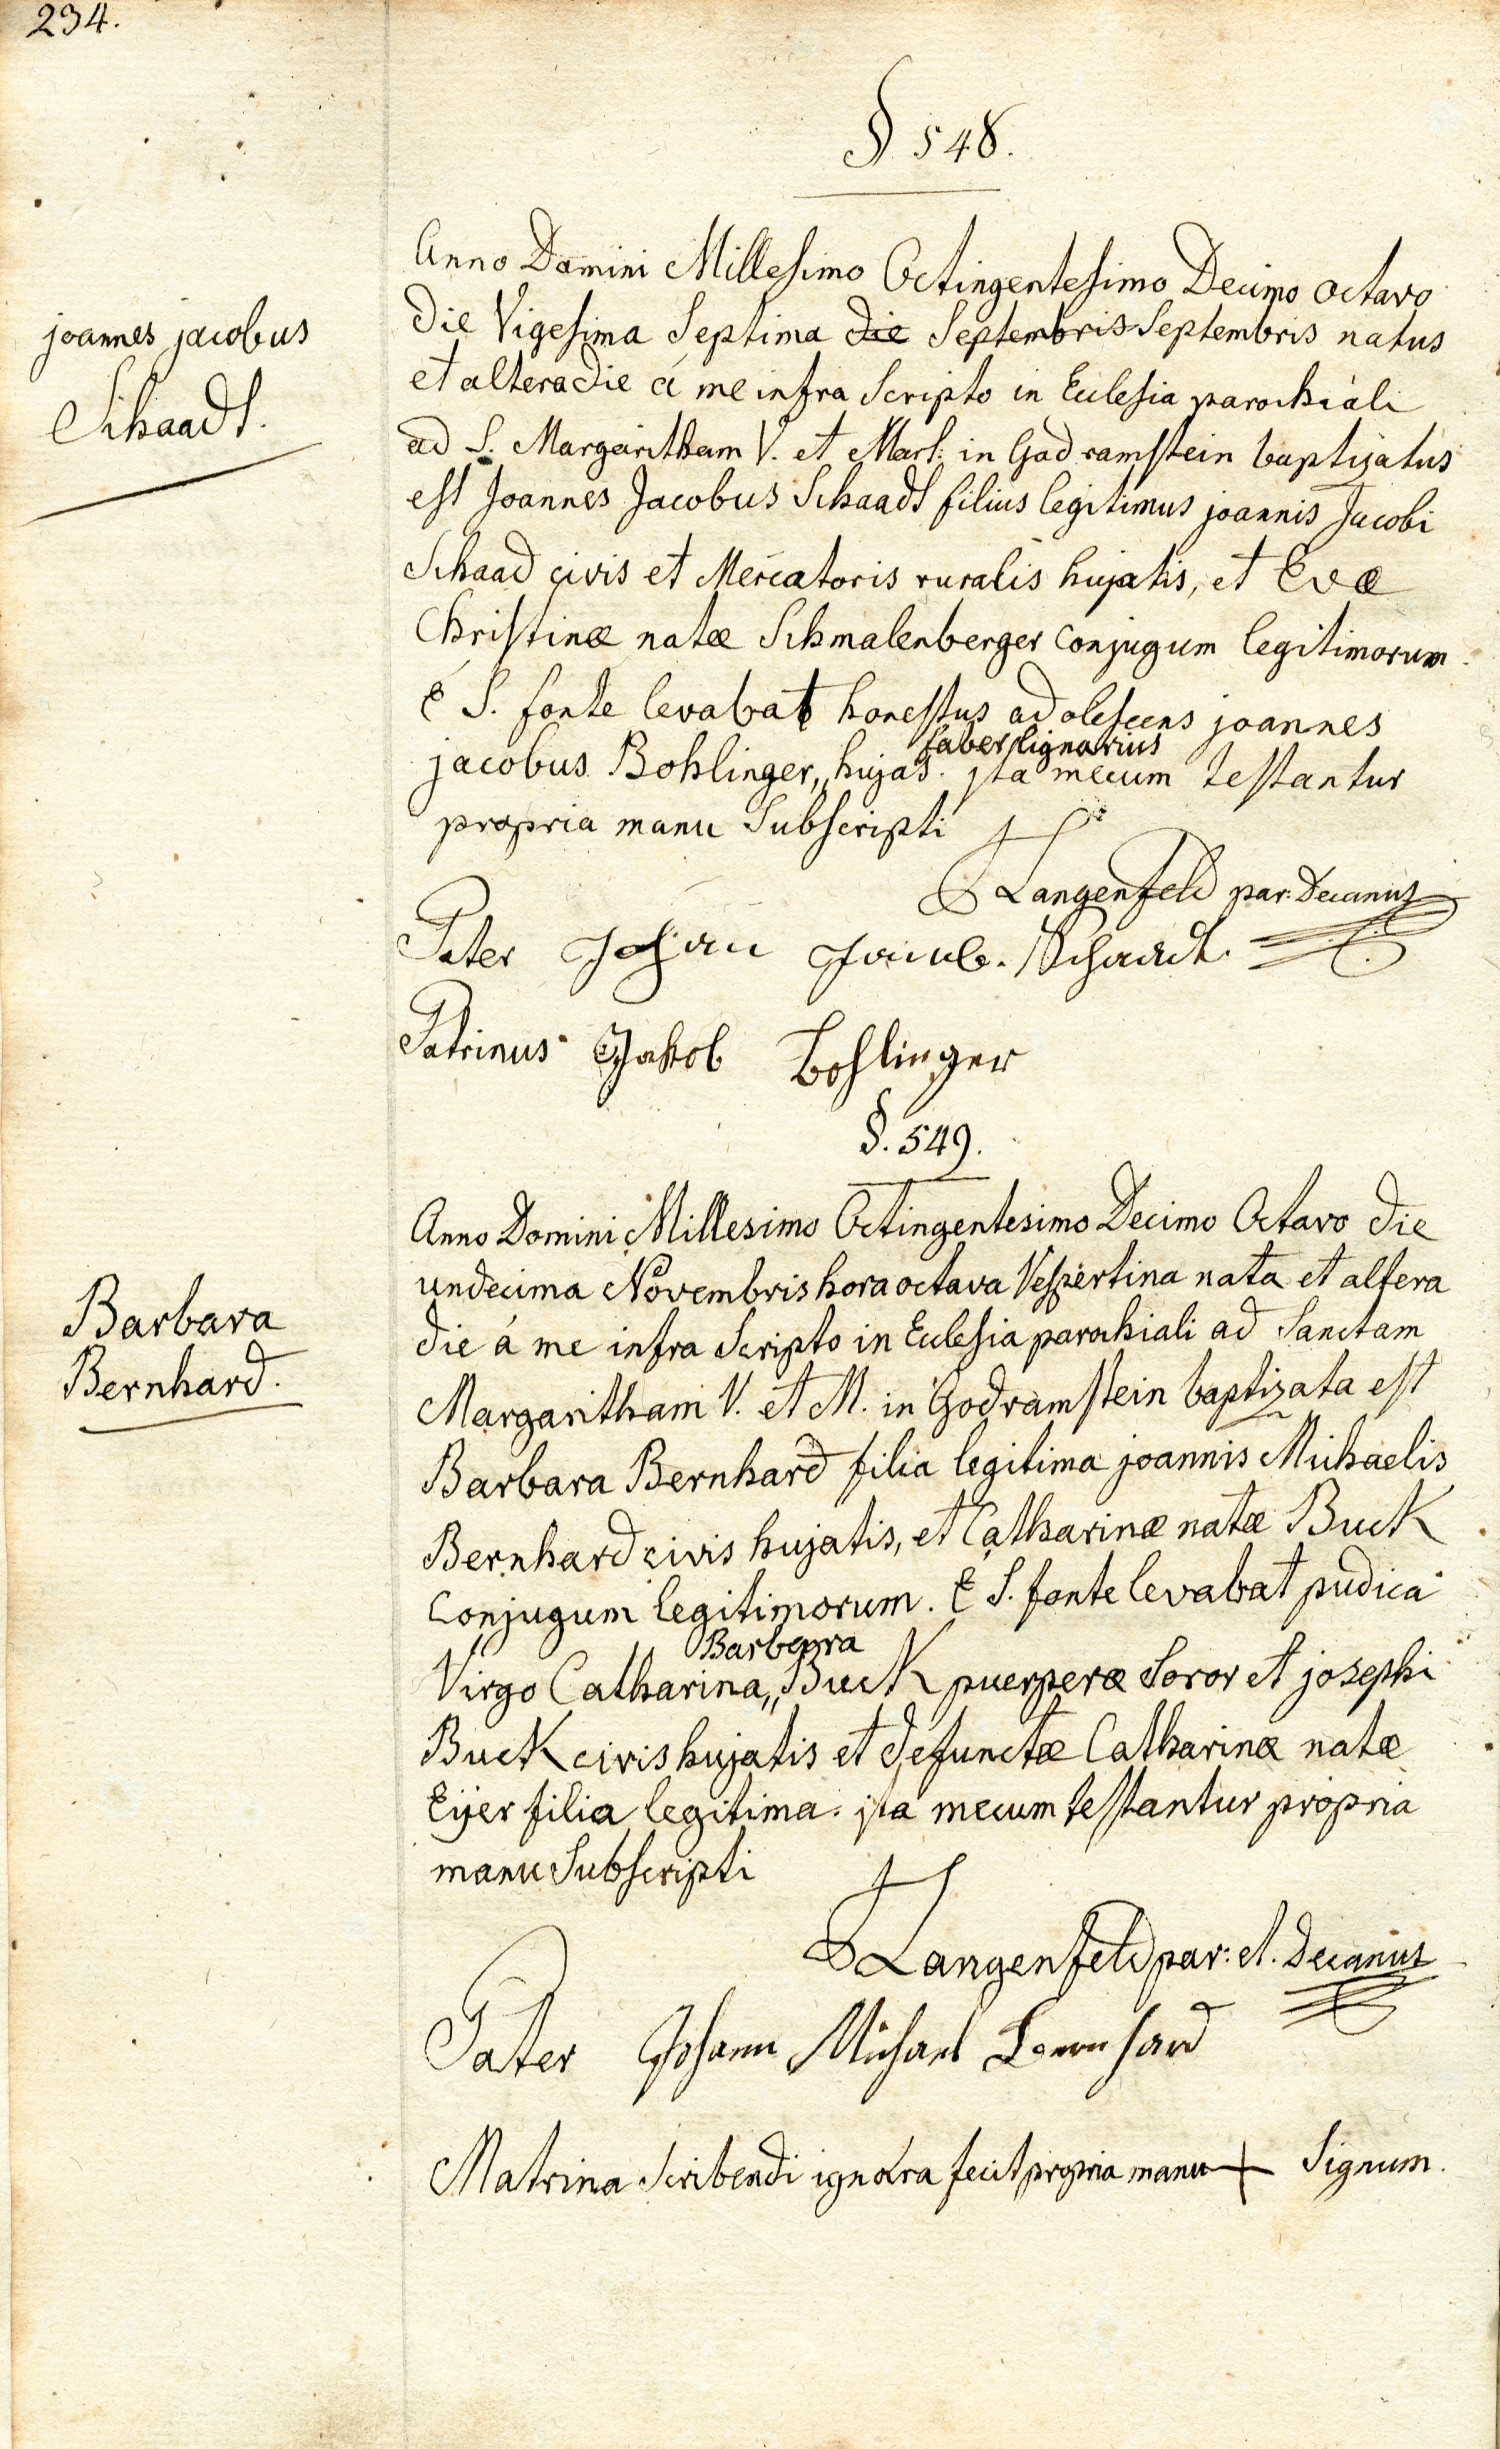 234.
§ 548.
joannes jacobus
Schaadt.
Anno Domini Millesimo Octingentesimo Decimo octavo
die Vigesima Septima die Septembris Septembris natus
et altera die á me infra Scripto in Ecclesia parochiali
ad S. Margaritham V. et Mart: in Godramstein baptizatus
est Joannes Jacobus Schaadt filius legitimus joannis Jacobi
Schaad civis et Mercatoris ruralis hujatis, et Evæ
Christinæ natæ Schmalenberger Conjugum legitimorum
é S. fonte levabat honestus adolescens joannes
faber lignarius
jacobus Bohlinger,, hujas. jta mecum testantur
propria manu Subscripti
Langenfeld par: Decanus
Pater Johan Jacob. Schaadt.
Patrinus Jakob Bohlinger
§. 549.
Barbara
Bernhard.
Anno Domini Millesimo Octingentesimo Decimo Octavo die
undecima Novembris hora octava Vespertina nata et altera
die á me infra Scripto in Ecclesia parochiali ad Sanctam
Margaritham V. et M. in Godramstein baptizata est
Barbara Bernhard filia legitima joannis Michaelis
Bernhard civis hujatis, et Catharinæ natæ Buck
Conjugum legitimorum. é S. fonte levabat pudica
Barbara
Virgo Catharina,, Buck puerperæ Soror et josephi
Buck civis hujatis et defunctæ Catharinæ natæ
Eÿer filia legitima. jta mecum testantur propria
manu Subscripti
Langenfeld par: et. Decanus
Pater Johann Michael Bernhard
Matrina Scribendi ignara fecit propria manu + Signum.